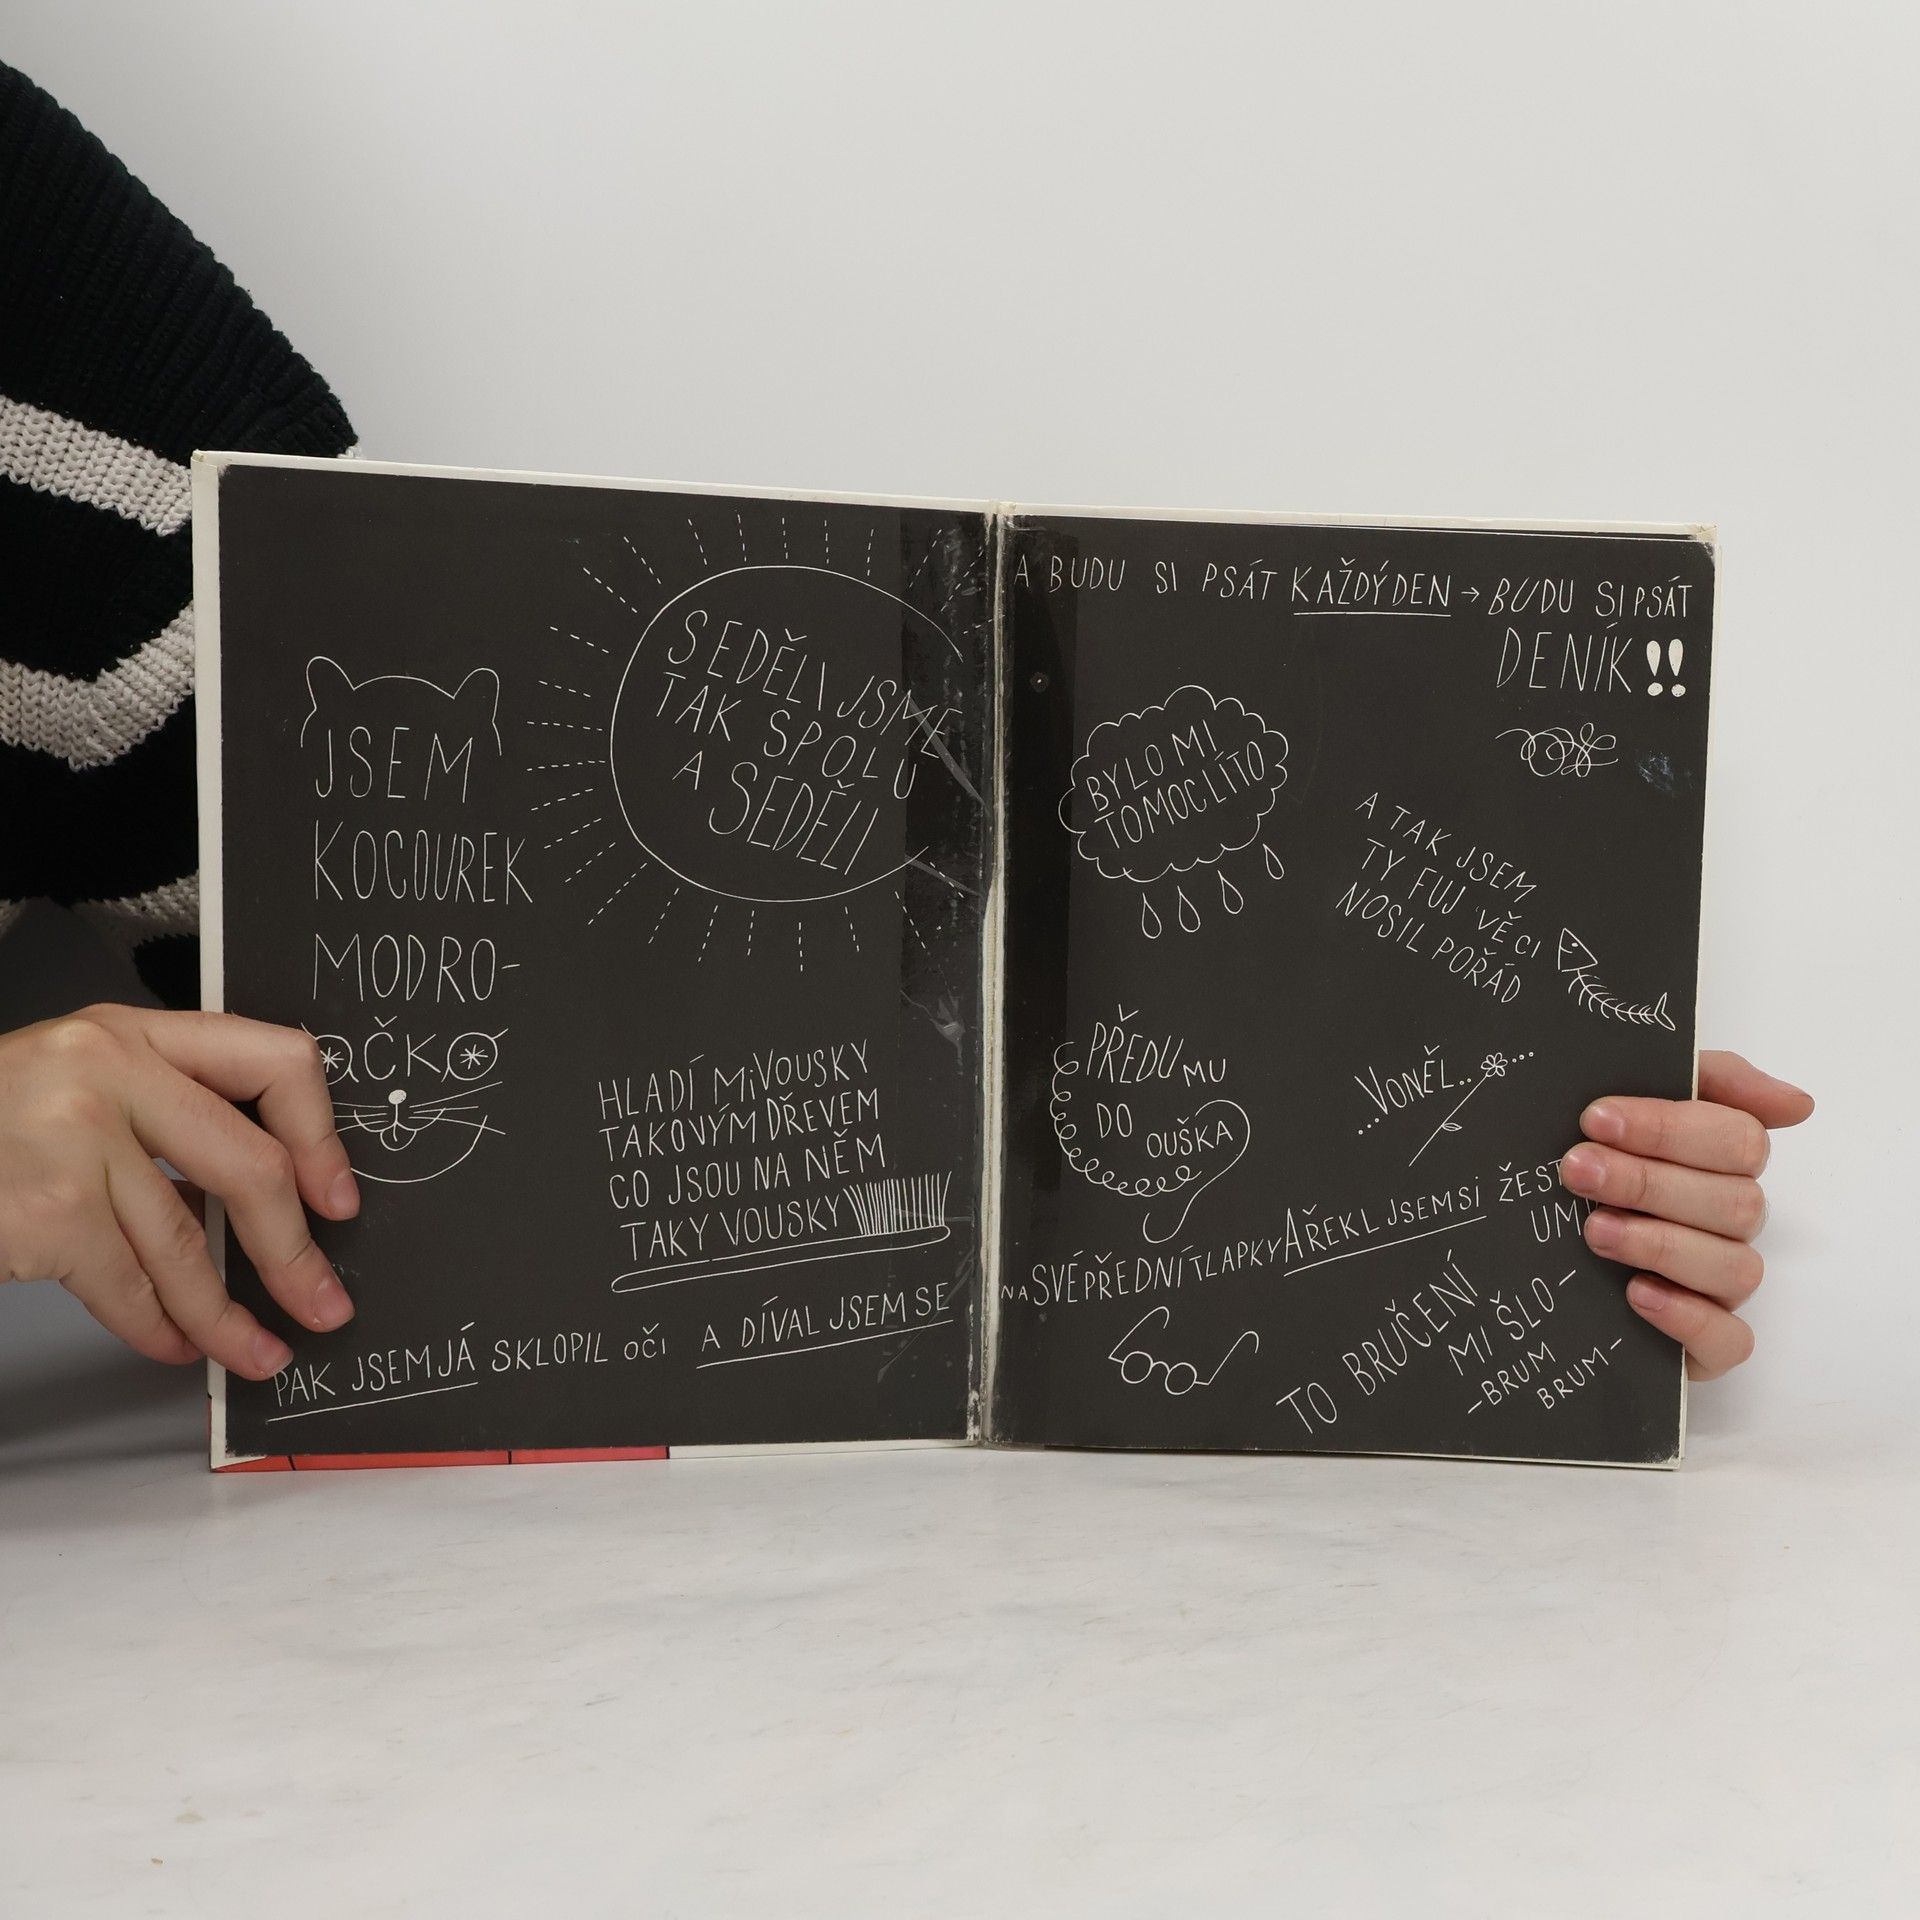 JSEM
KOCOUREK
MODRO-
OČKO
SEDĚLI JSME
TAK SPOLU
A SEDĚLI
HLADÍ MI VOUSKY
TAKOVÝM DŘEVEM
CO JSOU NA NĚM
TAKY VOUSKY
PAK JSEM JÁ SKLOPIL OČI A DÍVAL JSEM SE
A BUDU SI PSÁT KAŽDÝ DEN → BUDU SI PSÁT
DENÍK!!
BYLO MI
TOMOCLÍTO
A TAK JSEM
TY FUJ VĚCI
NOSIL POŘÁD
PŘEDU MU
DO
OUŠKA
...VONĚL.. ...
NA SVÉ PŘEDNÍ TLAPKY A ŘEKL JSEM SI
TO BRUČENÍ
MI ŠLO-
-BRUM
BRUM-